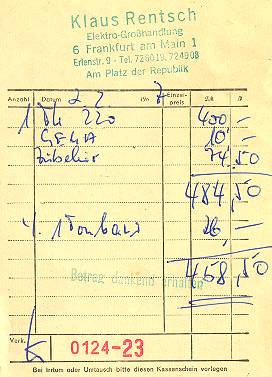 Klaus Rentsch
Elektro-Großhandlung
6 Frankfurt am Main 1
Erlenstr. 9 - Tel. 726019, 724908
Am Platz der Republik
Anzahl Datum 2. 2. 7 Einzelpreis
1 220 400 -
GEMA 10 -
Zubehör 74,50
484,50
1 Tonband 26,-
Betrag dankend erhalten
458,50
Verk.
0124-23
Bei Irrtum oder Umtausch bitte diesen Kassenschein vorlegen